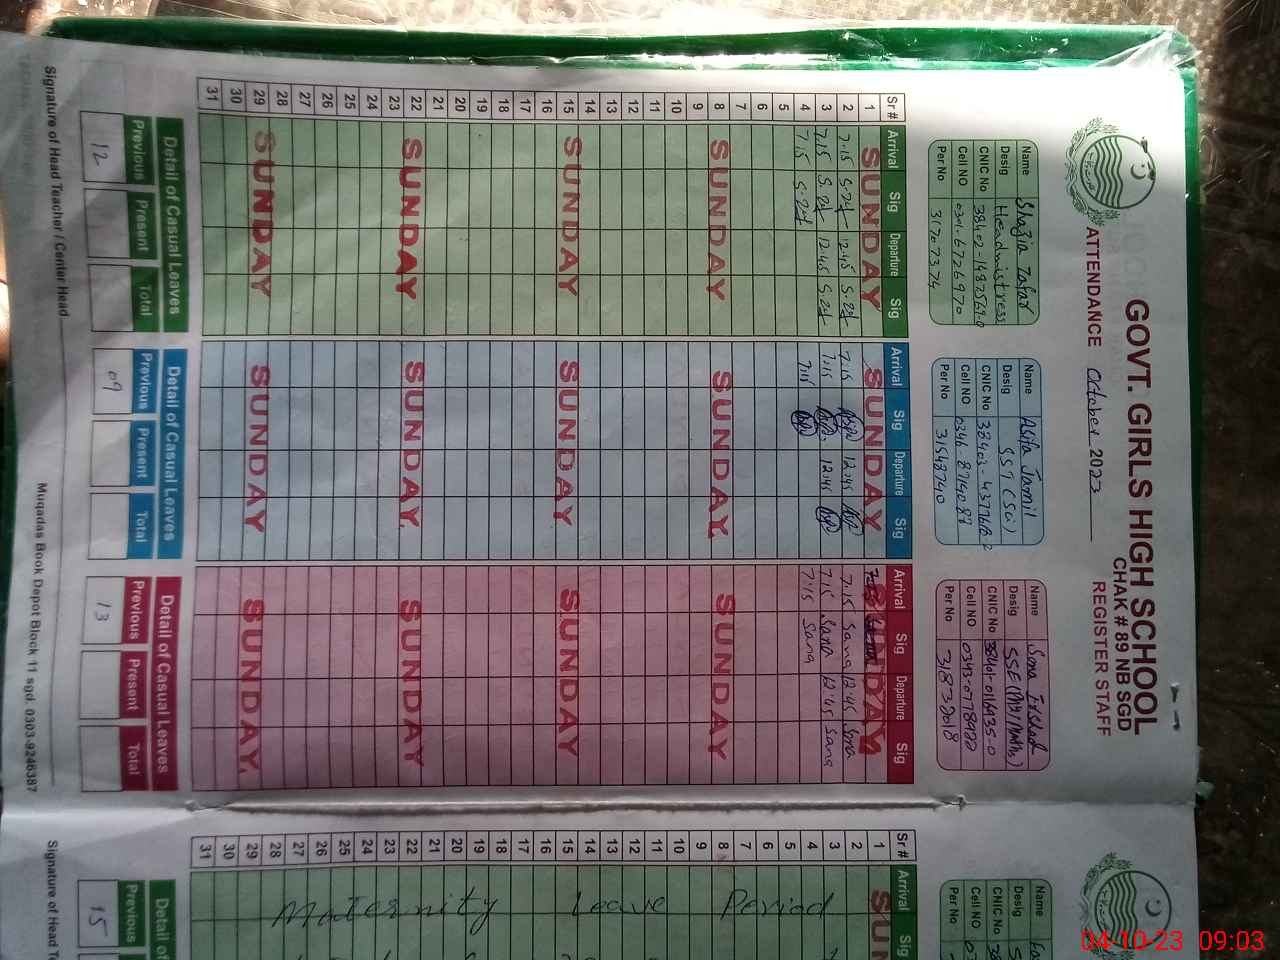 GOVT. GIRLS HIGH SCHOOL
CHAK # 89 NB SGD
ATTENDANCE October 2023 REGISTER STAFF
Name Shazia Zafar
Desig Headmistress
CNIC No 38402-1487569-0
Cell NO 0301-6726970
Per No 31707374
Name Asifa Jamil
Desig SST (Sci)
CNIC No
Cell NO
Per No 31548740
Name Sona Irshad
Desig SSE (Phy/Maths)
CNIC No
Cell NO
Per No 31832018
Sr# Arrival Sig Departure Sig Arrival Sig Departure Sig Arrival Sig Departure Sig
1 SUNDAY SUNDAY SUNDAY
2 7.15 12.45 7:15 12:45 7:15 Sana 12:45 Sona
3 7.15 12.45 7:15 12:45 7:15 Sana 12:45 Sana
4 7.15 7:15 7:15 Sana
5
6
7
8 SUNDAY SUNDAY. SUNDAY
9
10
11
12
13
14
15 SUNDAY SUNDAY SUNDAY
16
17
18
19
20
21
22 SUNDAY SUNDAY. SUNDAY
23
24
25
26
27
28
29 SUNDAY SUNDAY SUNDAY.
30
31
Detail of Casual Leaves Detail of Casual Leaves Detail of Casual Leaves
Previous Present Total Previous Present Total Previous Present Total
12 09 13
Signature of Head Teacher / Center Head
Muqadas Book Depot Block 11 sgd. 0303-9246387
Name
Desig
CNIC No
Cell NO
Per No
Sr# Arrival Sig
1 SUN
2
3
4
5
6
7
8
9
10
11
12
13
14
15
16
17
18
19
20
21
22
23
24
25
26
27
28
29
30
31
Maternity Leave Period
Detail of
Previous
15
Signature of Head Te
04-10-23 09:03